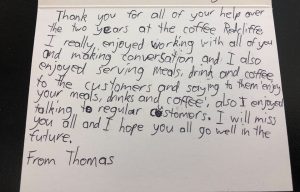 Thank you for all of your help over
the two years at the coffee Redcliffe
I really, enjoyed working with all of you
and making conversation and I also
enjoyed serving meals, drink and coffee
to the customers and saying to them "enjoy
your meals, drinks and coffee", also I enjoyed
talking to regular customers. I will miss
you all and I hope you all go well in the
future.
From Thomas